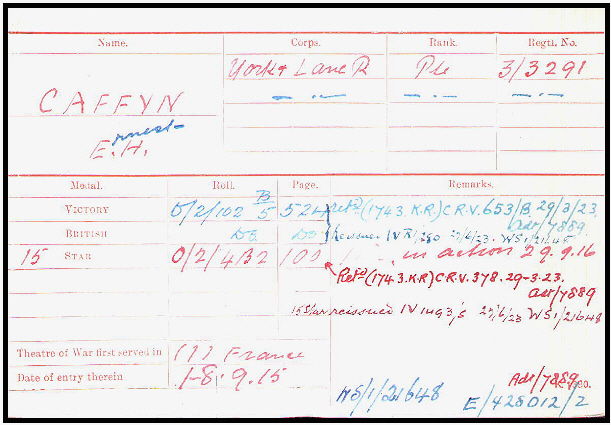 Name. Corps. Rank. Regtl. No.
York & Lanc R Pte 3/3291
CAFFYN
E.H.
Medal. Roll. Page. Remarks.
VICTORY O/2/102 B 5 524 Retd (1743.K.R) C.R.V. 653/B. 29/3/23.
adt/7889.
BRITISH DO DO Reissued IV 27/6/23. WS1/21648
15 STAR O/2/4/B2 in action 29.9.16
Retd (1743 K.R) C.R.V. 378. 29-3-23.
adt/7889
15 Star reissued IV 1493/S 27/6/23 WS1/21648
Theatre of War first served in (1) France
Date of entry therein 8.9.15
Adt/7889
WS/1/21648 E/428012/2